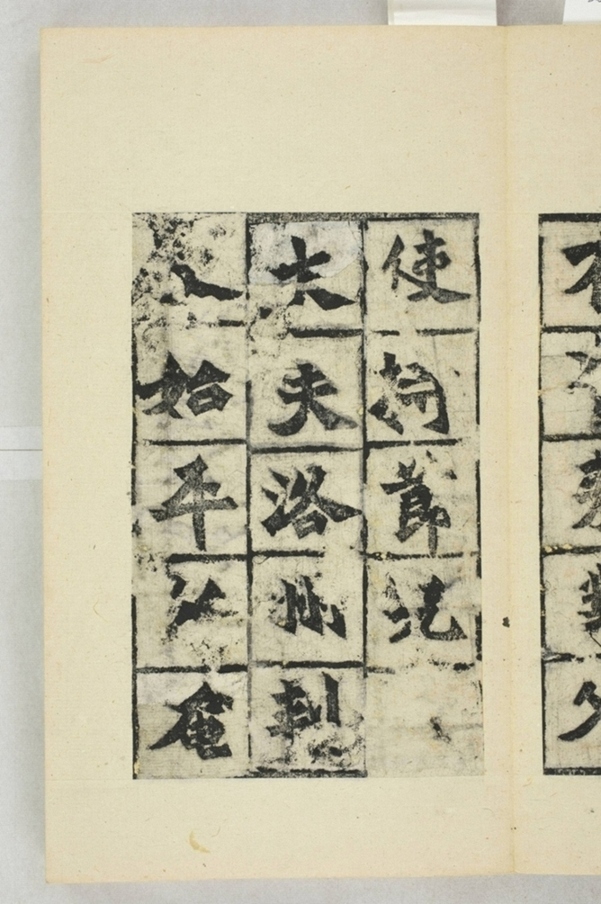 使持節光
大夫洛州刺
史始平公奄